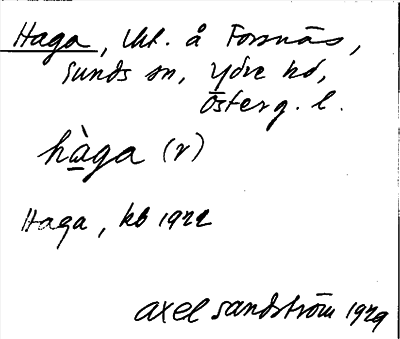 Haga, lht. å Forsnäs,
Sunds sn, Ydre hd,
Österg. l.
hàga (r)
Haga, kb 1922
axel sandström 1929